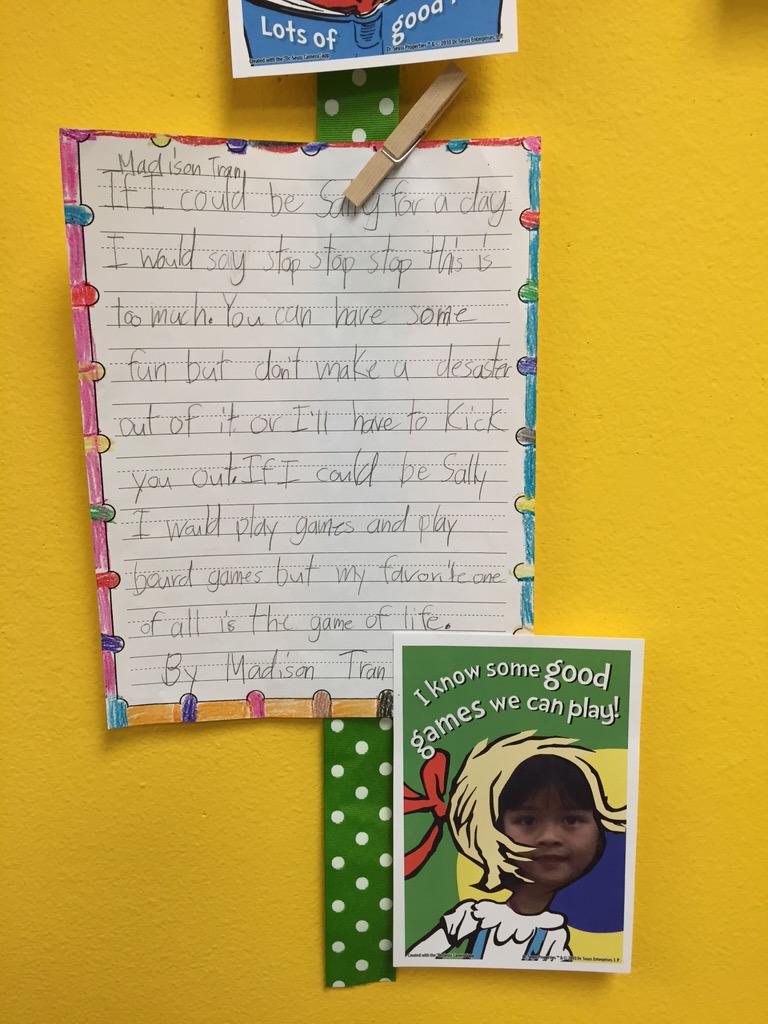 Lots of good
Created with the "Dr. Seuss Camera" app
Dr. Seuss Properties ™ & © 2010 Dr. Seuss Enterprises, L.P.
Madison Tran
If I could be Sally for a day
I would say stop stop stop this is
too much. You can have some
fun but don't make a desaster
out of it or I'll have to kick
you out. If I could be Sally
I would play games and play
board games but my favorite one
of all is the game of life.
By Madison Tran
I know some good
games we can play!